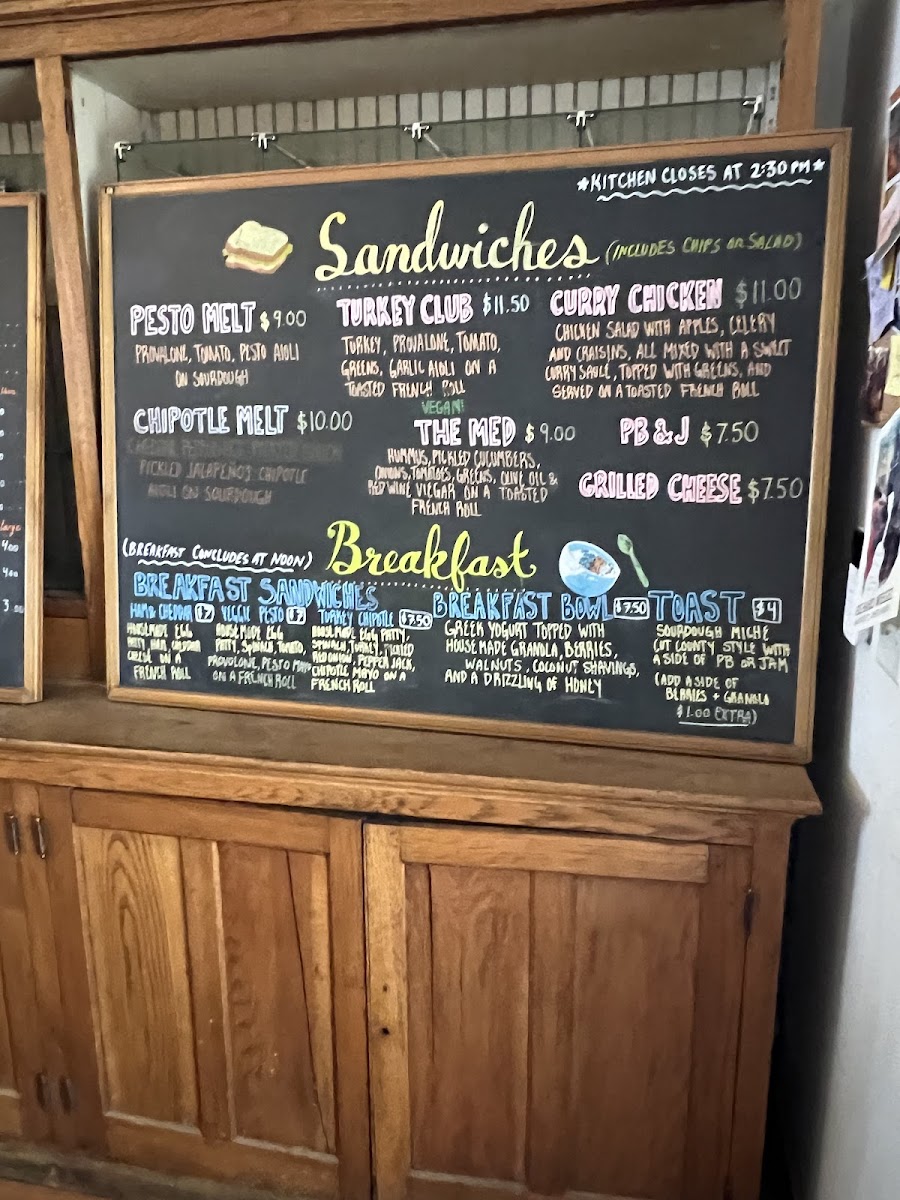 *KITCHEN CLOSES AT 2:30 PM*
Sandwiches (INCLUDES CHIPS OR SALAD)
PESTO MELT $9.00
PROVALONE, TOMATO, PESTO AIOLI
ON SOURDOUGH
TURKEY CLUB $11.50
TURKEY, PROVALONE, TOMATO,
GREENS, GARLIC AIOLI ON A
TOASTED FRENCH ROLL
CURRY CHICKEN $11.00
CHICKEN SALAD WITH APPLES, CELERY
AND CRAISINS, ALL MIXED WITH A SWEET
CURRY SAUCE, TOPPED WITH GREENS, AND
SERVED ON A TOASTED FRENCH ROLL
CHIPOTLE MELT $10.00
PICKLED JALAPEÑOS CHIPOTLE
AIOLI ON SOURDOUGH
VEGAN!
THE MED $9.00
HUMMUS, PICKLED CUCUMBERS,
ONIONS, TOMATOES, GREENS, OLIVE OIL &
RED WINE VIEGAR ON A TOASTED
FRENCH ROLL
PB & J $7.50
GRILLED CHEESE $7.50
(BREAKFAST CONCLUDES AT NOON)
Breakfast
BREAKFAST SANDWICHES
HAM & CHEDDAR $7
HOUSEMADE EGG
PATTY, HAM, CHEDDAR
CHEESE ON A
FRENCH ROLL
VEGGIE PESTO $7
HOUSEMADE EGG
PATTY, SPINACH, TOMATO,
PROVOLONE, PESTO MAYO
ON A FRENCH ROLL
TURKEY CHIPOTLE $7.50
HOUSEMADE EGG PATTY,
SPINACH, TURKEY, PICKLED
RED ONION, PEPPER JACK,
CHIPOTLE MAYO ON A
FRENCH ROLL
BREAKFAST BOWL $7.50
GREEK YOGURT TOPPED WITH
HOUSEMADE GRANOLA, BERRIES,
WALNUTS, COCONUT SHAVINGS,
AND A DRIZZLING OF HONEY
TOAST $4
SOURDOUGH MICHE
CUT COUNTY STYLE WITH
A SIDE OF PB OR JAM
(ADD A SIDE OF
BERRIES + GRANOLA
$1.00 EXTRA)
Large
4.00
4.00
3.00